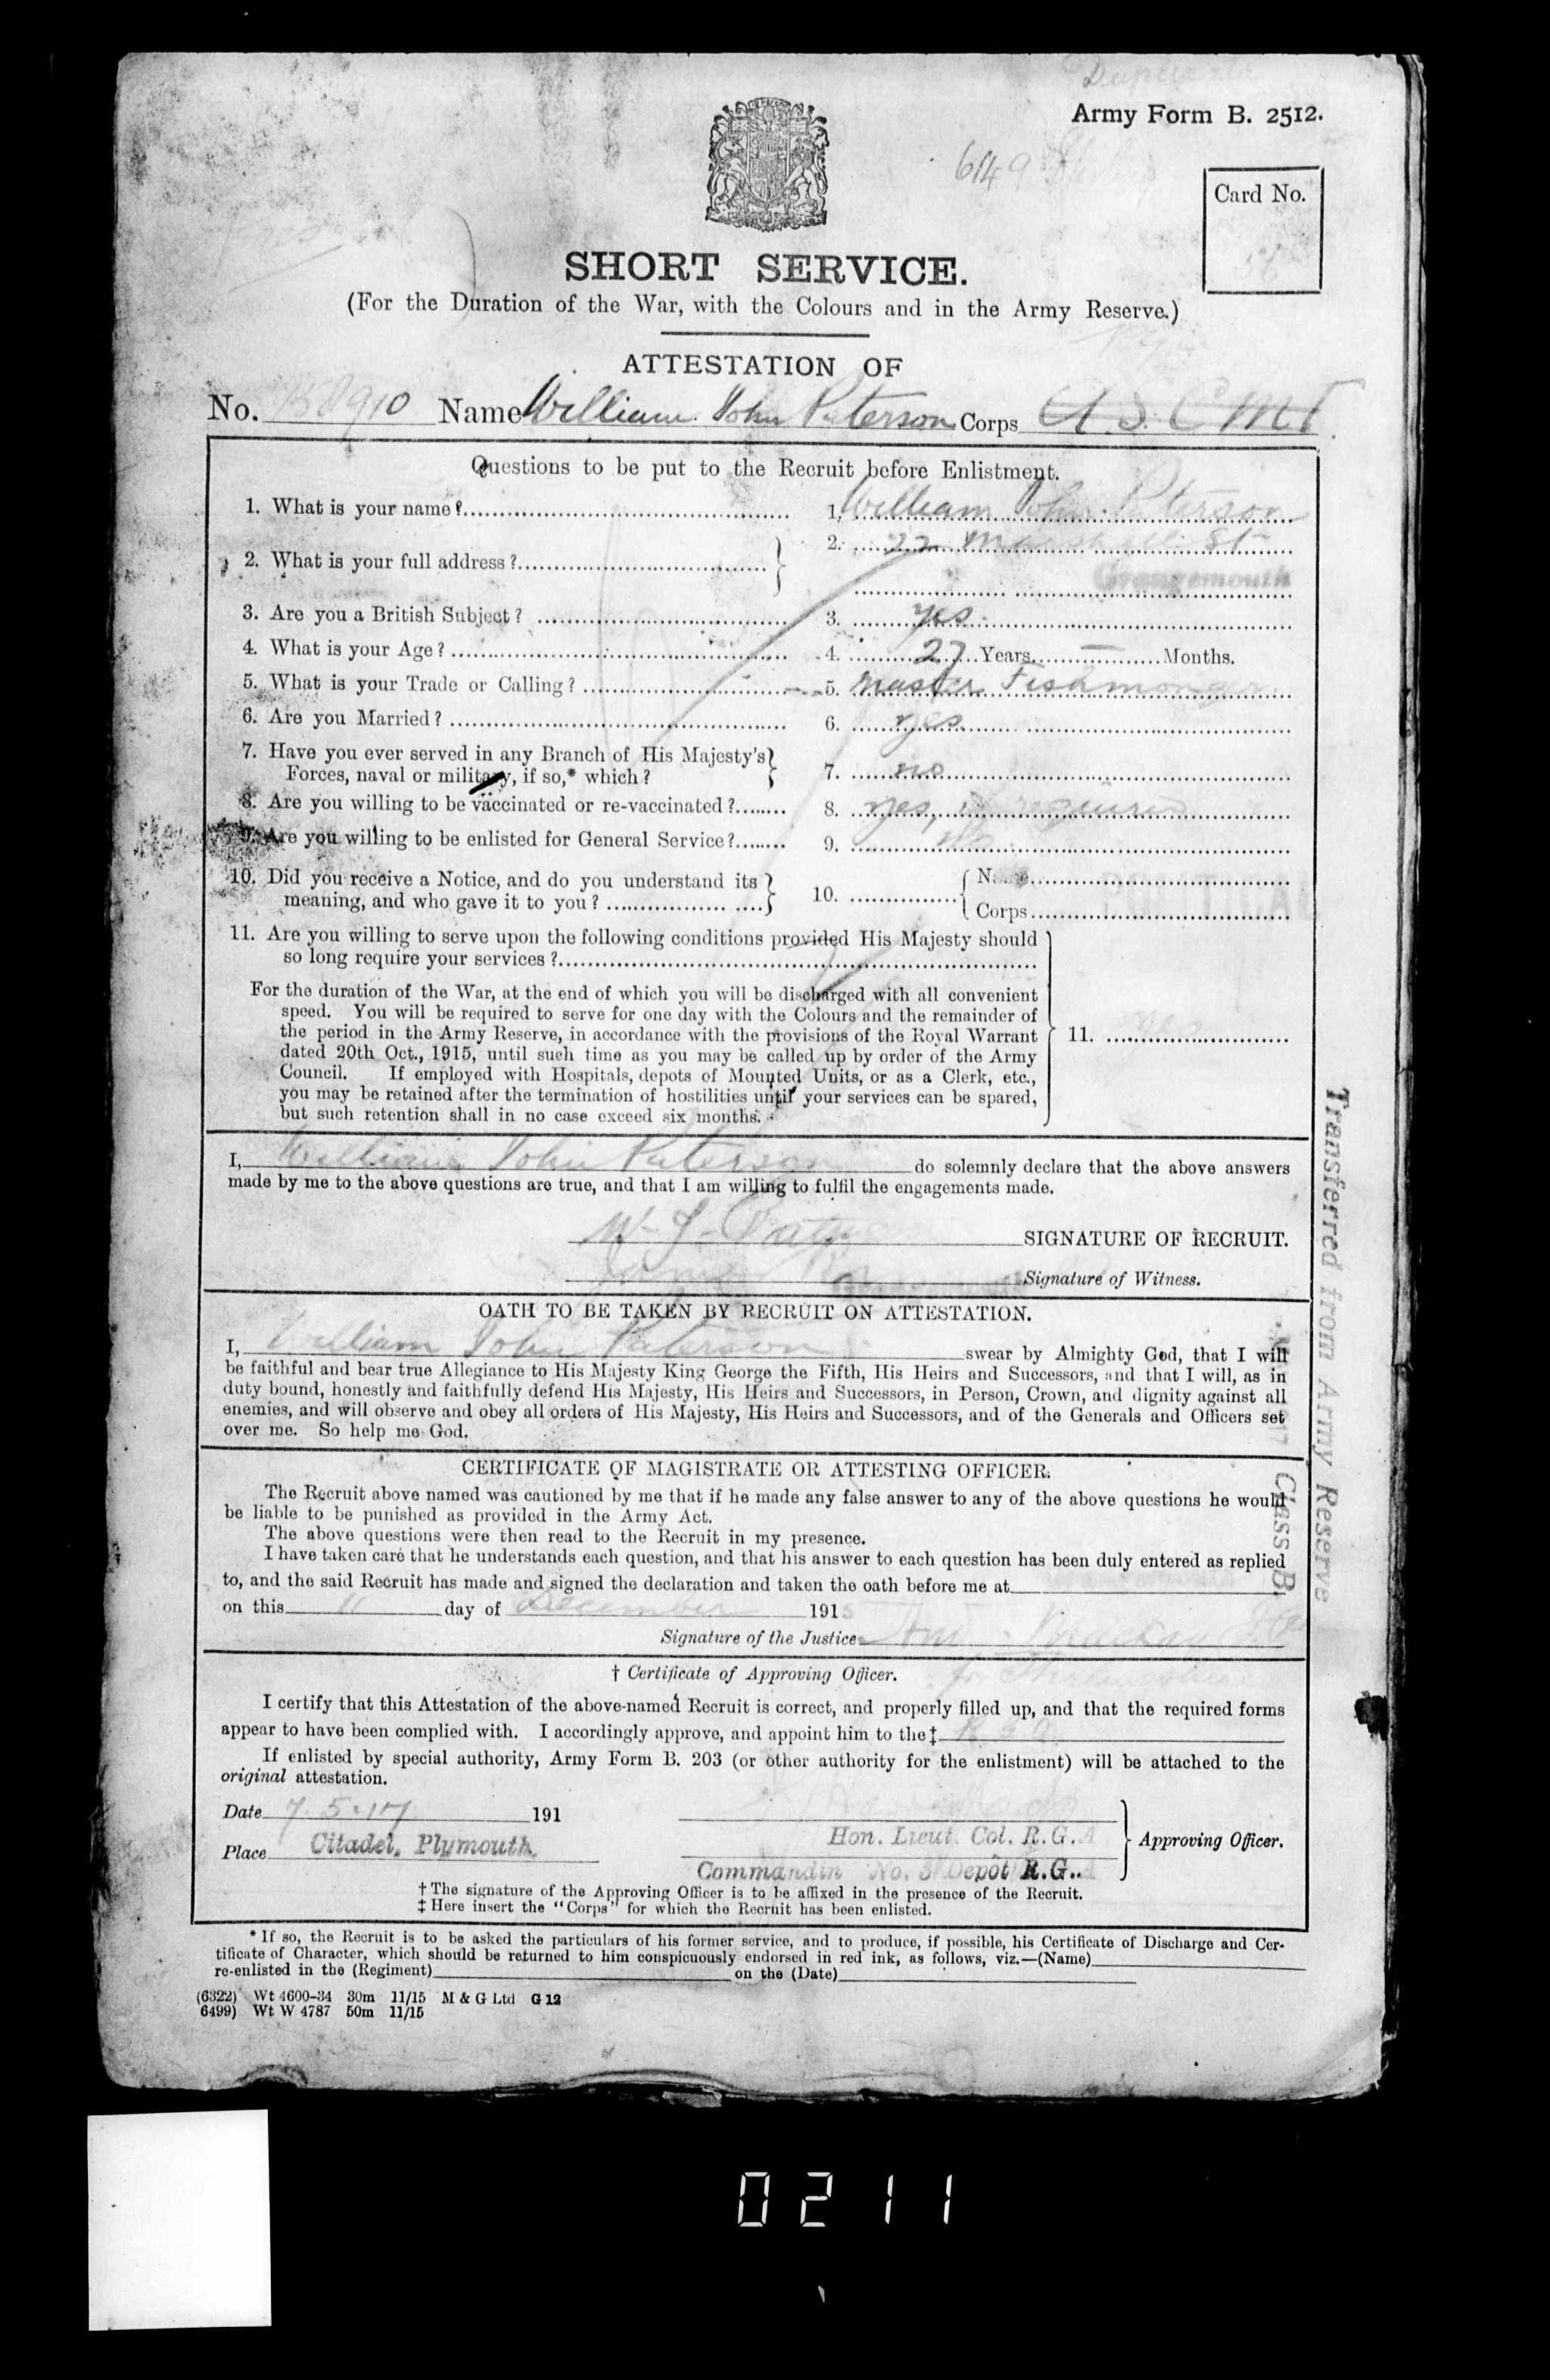 Duplicate
Army Form B. 2512.
649
Card No.
SHORT SERVICE.
(For the Duration of the War, with the Colours and in the Army Reserve.)
ATTESTATION OF
No. Name William John Paterson Corps A.S.C M.T.
Questions to be put to the Recruit before Enlistment.
1. What is your name? 1. William John Paterson
2. What is your full address? 2. 22 Marshall St
Grangemouth
3. Are you a British Subject? 3. yes
4. What is your Age? 4. 27 Years — Months.
5. What is your Trade or Calling? 5. Master Fishmonger
6. Are you Married? 6. yes
7. Have you ever served in any Branch of His Majesty's
Forces, naval or military, if so,* which? 7. no
8. Are you willing to be vaccinated or re-vaccinated? 8. yes, if required
9. Are you willing to be enlisted for General Service? 9.
10. Did you receive a Notice, and do you understand its
meaning, and who gave it to you? 10. Corps
11. Are you willing to serve upon the following conditions provided His Majesty should
so long require your services?
For the duration of the War, at the end of which you will be discharged with all convenient
speed. You will be required to serve for one day with the Colours and the remainder of
the period in the Army Reserve, in accordance with the provisions of the Royal Warrant
dated 20th Oct., 1915, until such time as you may be called up by order of the Army
Council. If employed with Hospitals, depots of Mounted Units, or as a Clerk, etc.,
you may be retained after the termination of hostilities until your services can be spared,
but such retention shall in no case exceed six months.
11. yes
I, William John Paterson do solemnly declare that the above answers
made by me to the above questions are true, and that I am willing to fulfil the engagements made.
W. J. SIGNATURE OF RECRUIT.
James Signature of Witness.
OATH TO BE TAKEN BY RECRUIT ON ATTESTATION.
I, William John Paterson swear by Almighty God, that I will
be faithful and bear true Allegiance to His Majesty King George the Fifth, His Heirs and Successors, and that I will, as in
duty bound, honestly and faithfully defend His Majesty, His Heirs and Successors, in Person, Crown, and dignity against all
enemies, and will observe and obey all orders of His Majesty, His Heirs and Successors, and of the Generals and Officers set
over me. So help me God.
CERTIFICATE OF MAGISTRATE OR ATTESTING OFFICER.
The Recruit above named was cautioned by me that if he made any false answer to any of the above questions he would
be liable to be punished as provided in the Army Act.
The above questions were then read to the Recruit in my presence.
I have taken care that he understands each question, and that his answer to each question has been duly entered as replied
to, and the said Recruit has made and signed the declaration and taken the oath before me at
on this 11 day of December 1915
Signature of the Justice
† Certificate of Approving Officer.
I certify that this Attestation of the above-named Recruit is correct, and properly filled up, and that the required forms
appear to have been complied with. I accordingly approve, and appoint him to the‡ R.G.A.
If enlisted by special authority, Army Form B. 203 (or other authority for the enlistment) will be attached to the
original attestation.
Date 7.5.17 191
Hon. Lieut. Col. R.G.A
Place Citadel, Plymouth. Approving Officer.
Commandin No. 3 Depôt R.G.A
† The signature of the Approving Officer is to be affixed in the presence of the Recruit.
‡ Here insert the "Corps" for which the Recruit has been enlisted.
* If so, the Recruit is to be asked the particulars of his former service, and to produce, if possible, his Certificate of Discharge and Cer-
tificate of Character, which should be returned to him conspicuously endorsed in red ink, as follows, viz.—(Name)
re-enlisted in the (Regiment) on the (Date)
(6322) Wt 4600-34 30m 11/15 M & G Ltd G 12
6499) Wt W 4787 50m 11/15
Transferred from Army Reserve
Class B
0211